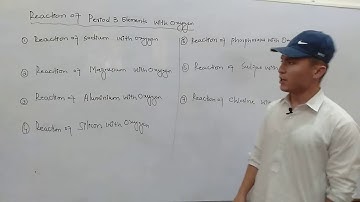 Reaction of Period 3 Elements with Oxygen
① Reaction of sodium with oxygen
② Reaction of Magnesium with Oxygen
③ Reaction of Aluminium with Oxygen
④ Reaction of Silicon with Oxygen
⑤ Reaction of phosphorous with Oxygen
⑥ Reaction of Sulfur with
⑦ Reaction of Chlorine with